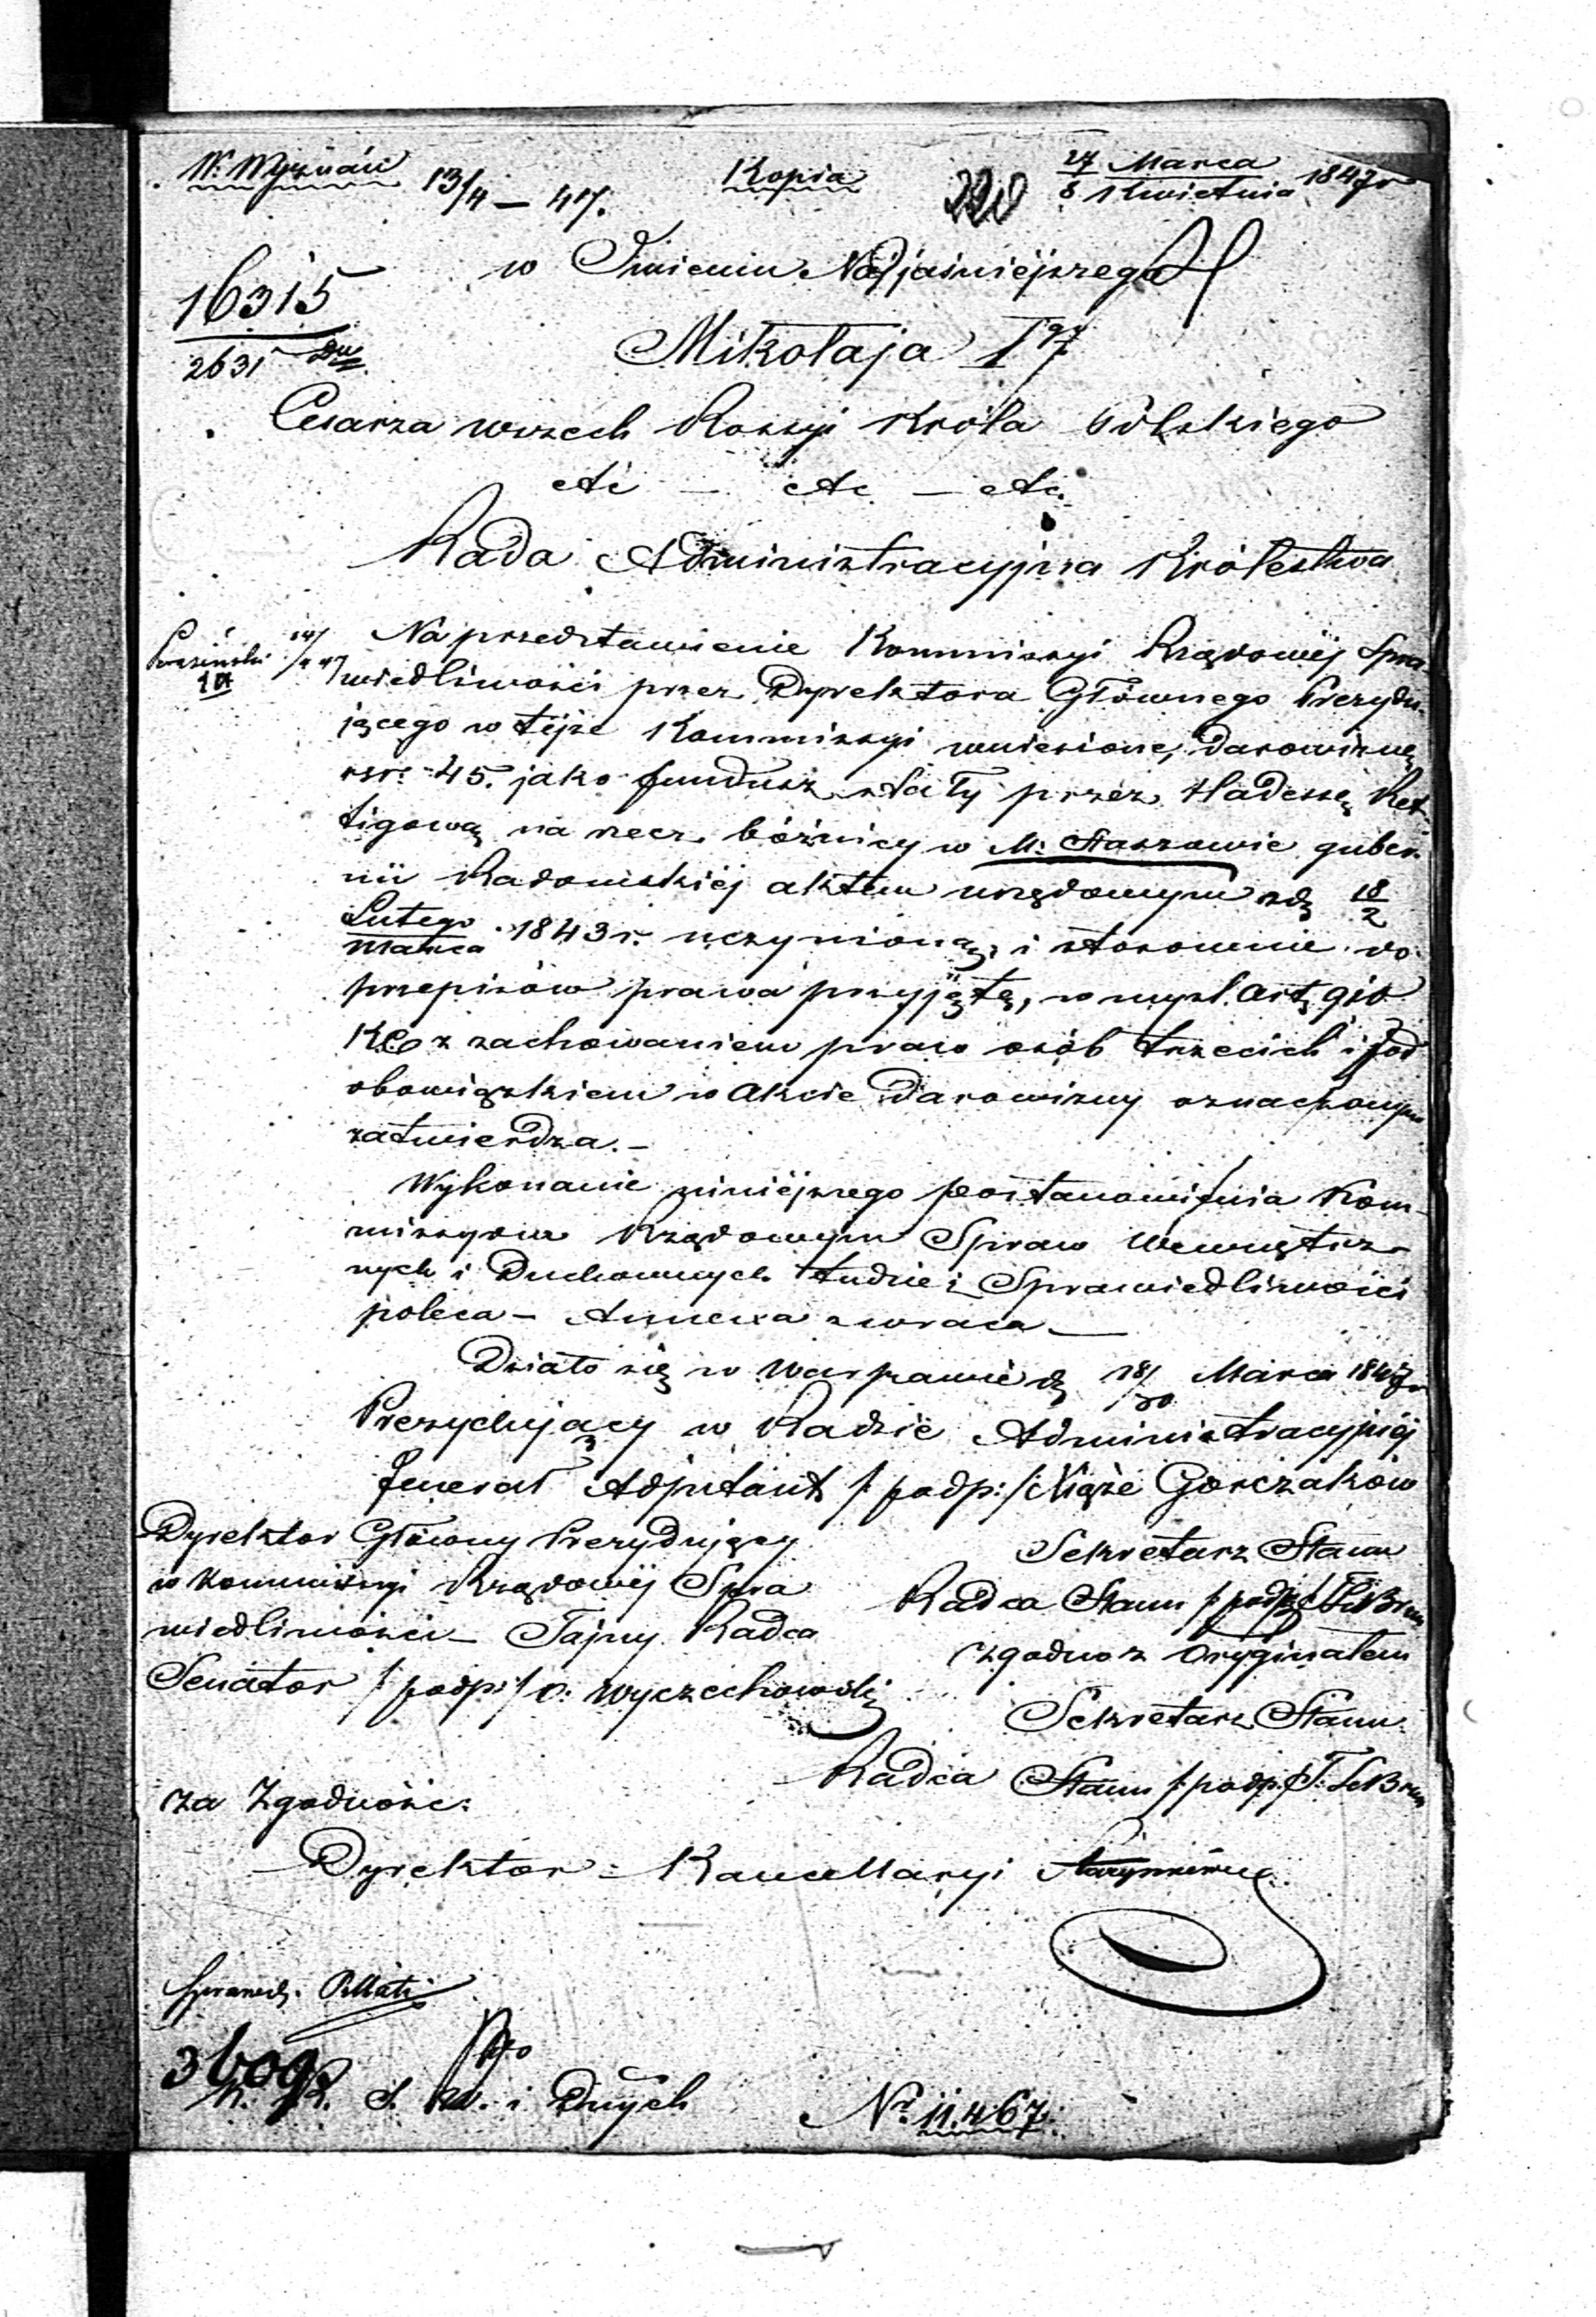 W: Wyznań 13/4 – 47. Kopia 220 27 Marca / 8 Kwietnia 1847 r
16315
2631
w Imieniu Najjaśniejszego
Mikołaja Igo
Cesarza wszech Rossyi Króla Polskiego
etc – etc – etc.
Rada Administracyjna Królestwa
Na przedstawienie Kommissyi Rządowéj Spra-
wiedliwości przez Dyrektora Głównego Prezydu-
jącego w téjże Kommissyi wniesione, darowiznę
rsr: 45. jako fundusz stały przez Hadessę Ret-
tigową na rzecz bóżnicy w M: Staszowie guber-
nii Radomskiéj aktem urzędowym z d. 18/2
Lutego/Marca 1843 r. uczynioną, i stosownie do
przepisów prawa przyjętą, w myśl Art. 910
KC z zachowaniem praw osób trzecich i pod
obowiązkiem w akcie darowizny oznaczonym
zatwierdza. –
Wykonanie niniéjszego postanowienia Kom-
missyom Rządowym Spraw Wewnętrz-
nych i Duchownych tudzież Sprawiedliwości
poleca – Annexa zwraca –
Działo się w Warszawie d. 18/30 Marca 1847 r
Prezydujący w Radzie Administracyjnéj
Jenerał Adjutant /: podp: /: Xiąże Gorczaków
Dyrektor Główny Prezydujący
w Kommissyi Rządowéj Spra
wiedliwości – Tajny Radca
Senator /: podp: / O: Wyczechowski
Sekretarz Stanu
Radca Stanu /: podp: / T: LeBrun
Zgodno z Oryginałem
Sekretarz Stanu
Radca Stanu /: podp: / T: LeBrun
Za Zgodność:
Dyrektor Kancellaryi
K. R. S. W. i Duych
Nr. 11.467.